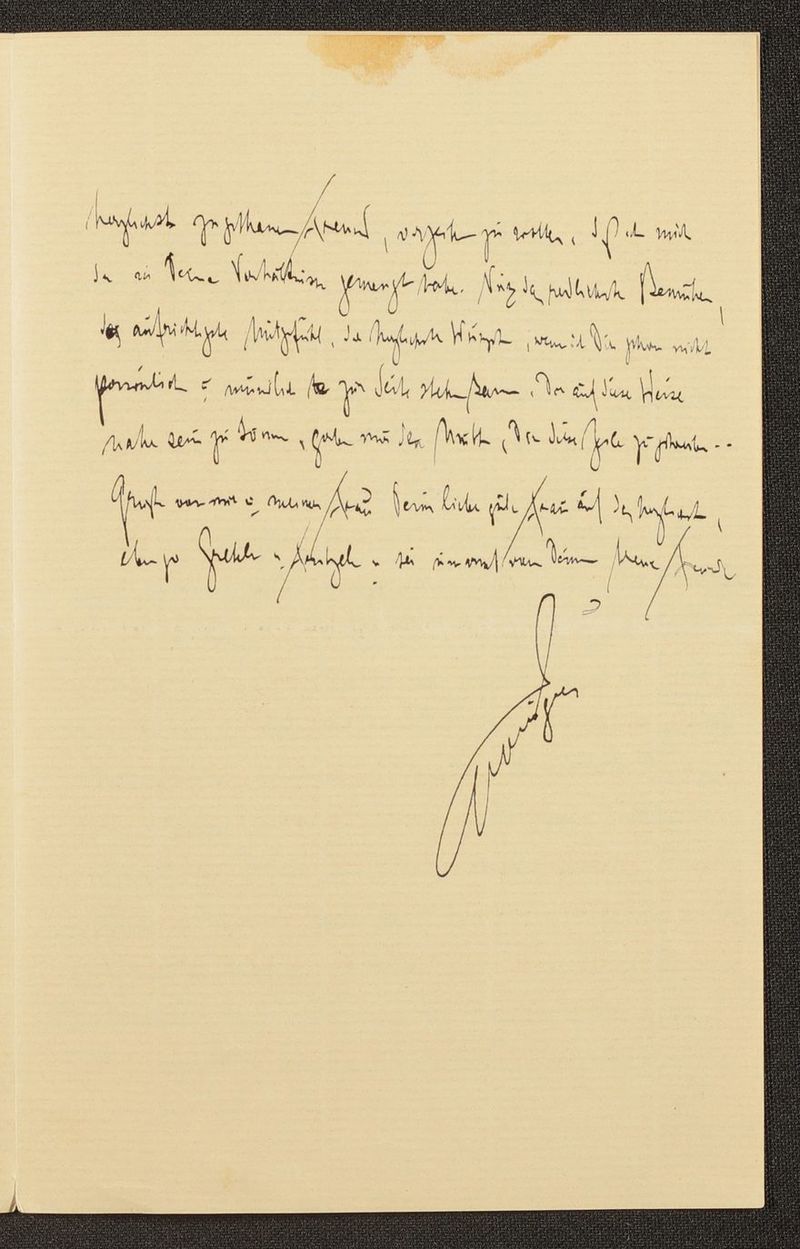 herzlichst zugethanen Freund, verzeihen zu wollen, daß ich mich
da in Deine Verhältnisse gemengt habe. Nur das redlichste Bemühen,
das aufrichtigste Mitgefühl, der herzlichste Wunsch, wenn ich Dir schon nicht
persönlich u mündlich zur Seite stehen kann, Dir auf diese Weise
nahe sein zu können, gaben mir den Muth, Dir diese Zeile zu schreiben --
Grüße von mir u meiner Frau Deine liebe gute Frau auf das herzlichst,
ebenso Gretel u Fritzel u sei umarmt von Deinem treuen Freunde